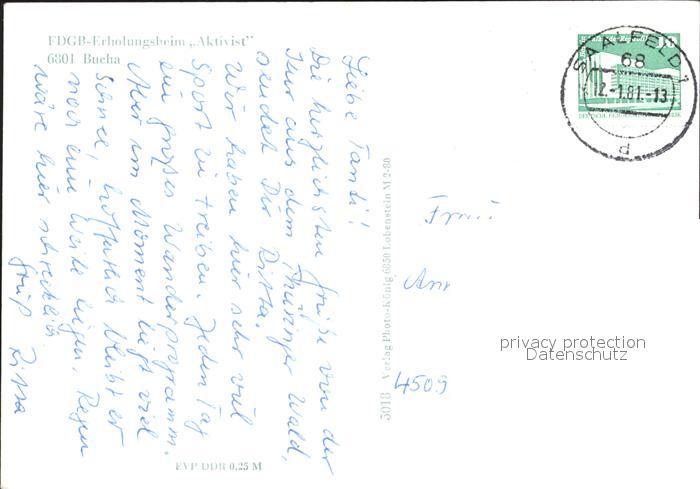 FDGB-Erholungsheim „Aktivist"
6801 Bucha
Liebe Tanti!
Die herzlichsten Grüße von der
Tur aus dem Thüringer Wald,
sendet Dir Ritta.
Wir haben hier sehr viel
Sport zu treiben. Jeden Tag
ein großes Wanderprogramm.
Nur im Moment liegt viel
Schnee, hoffentlich bleibt er
noch eine Weile liegen. Regen
wäre hier schrecklich.
Gruß Ritta
EVP DDR 0,25 M
5018 Verlag Photo-König 6850 Lobenstein M 2-80
SAALFELD 1
68
12.-1.81.-13
d
Frau
4509
privacy protection
Datenschutz